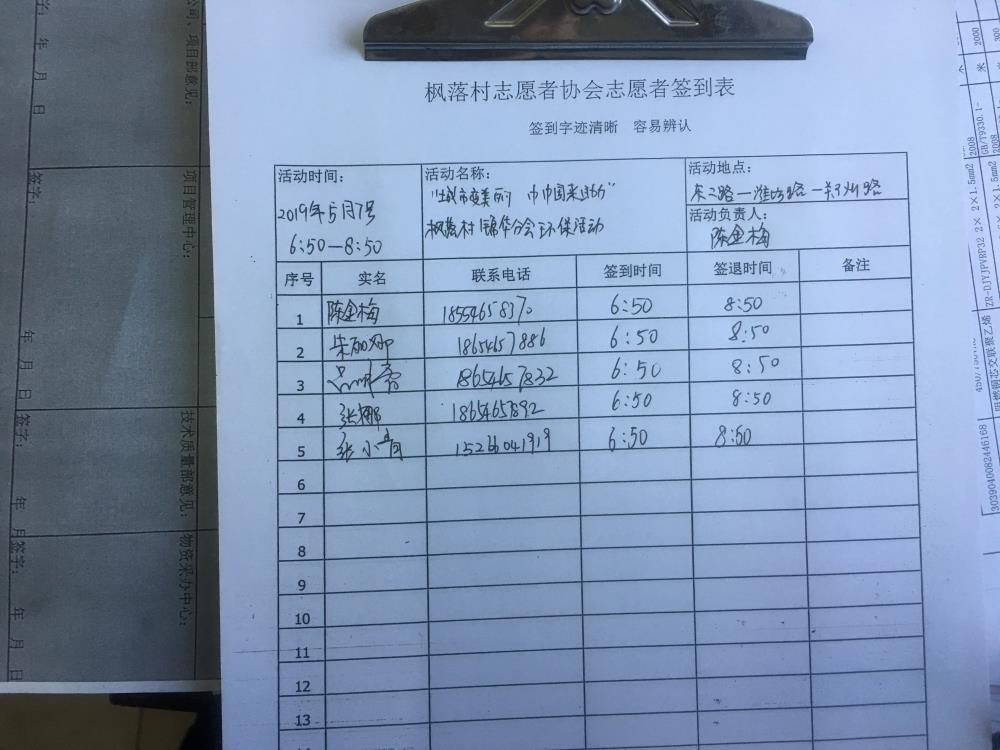 枫落村志愿者协会志愿者签到表
签到字迹清晰 容易辨认
活动时间：
2019年5月7号
6:50—8:50
活动名称：
"城市变美丽 巾帼来
枫落村锦华分会环保活动
活动地点：
东二路—潍坊路—
活动负责人：
陈金梅
序号 实名 联系电话 签到时间 签退时间 备注
1 陈金梅 1855465837 6:50 8:50
2 朱丽娜 18654657886 6:50 8:50
3 18654657832 6:50 8:50
4 张娜 18654657892 6:50 8:50
5 张小青 15266041919 6:50 8:50
6
7
8
9
10
11
12
13
公司、项目部意见：
签字：
年 月 日
项目管理中心：
签字：
年 月 日
技术质量部意见：
签字：
年 月
物资采办中心：
签字：
年 月 日
米 2000
米 300
GB/T9330.1-2008
ZR-DJYJPVRP32 2×2×1.5mm2
30390400824461​68